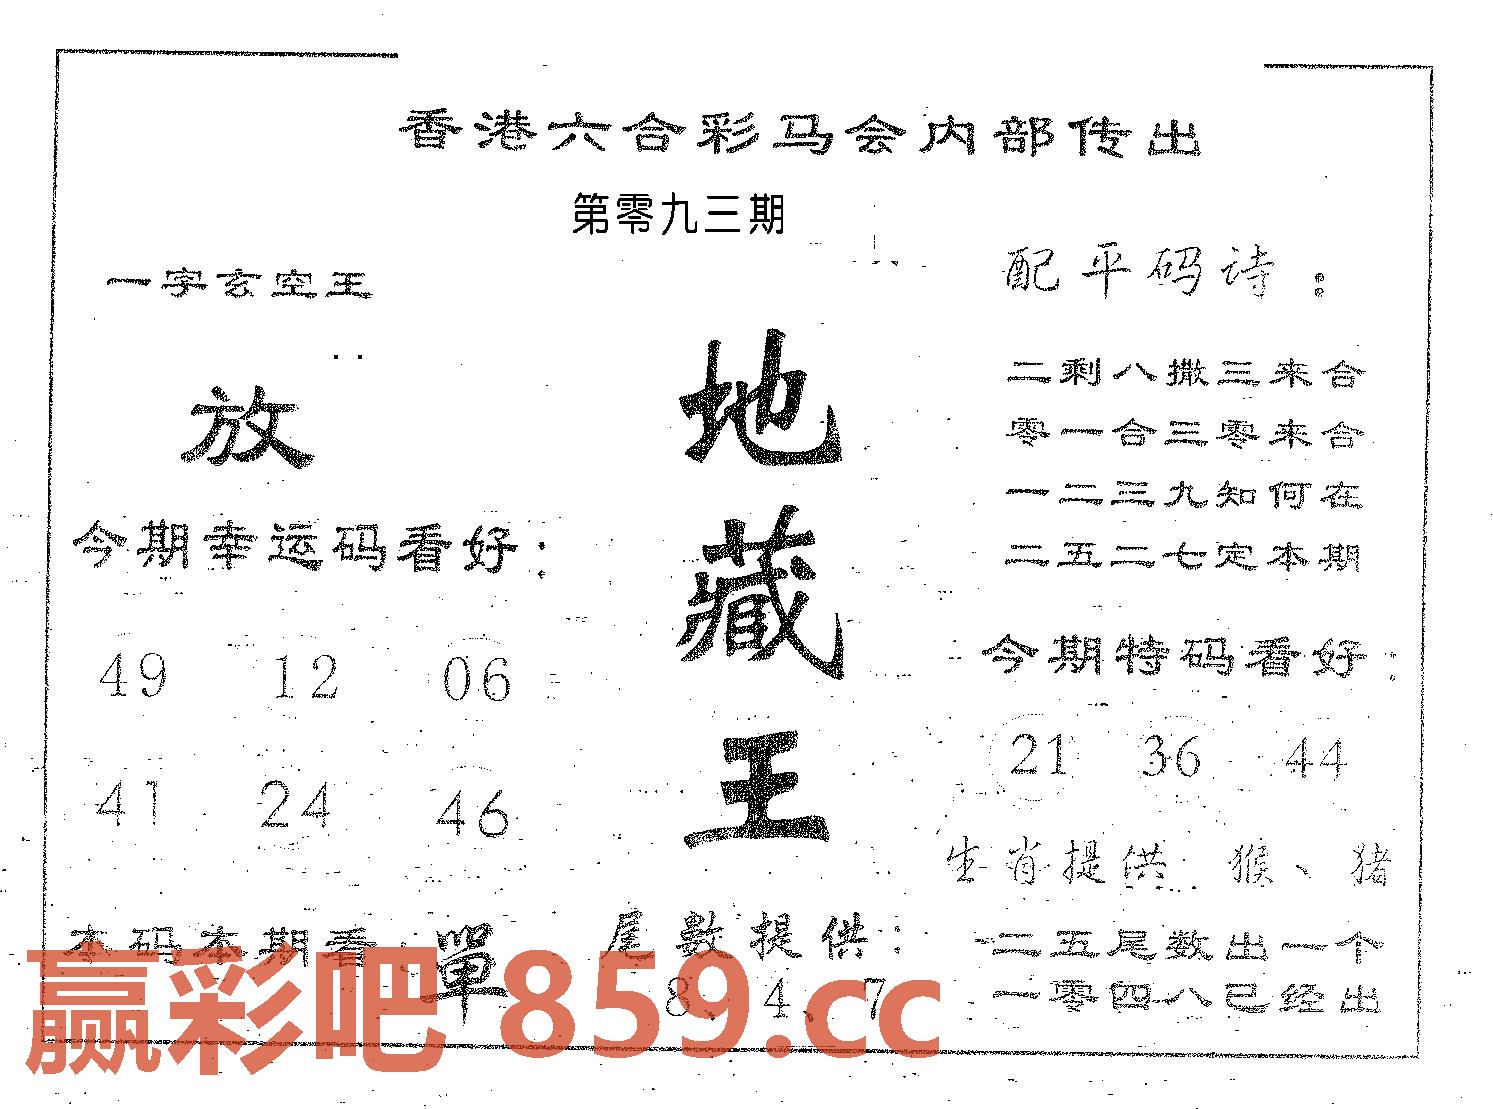 香港六合彩马会内部传出
第零九三期
一字玄空王
放
今期幸运码看好：
49 12 06
41 24 46
本码本期看：單
地
藏
王
尾数提供：
8、4、7
配平码诗：
二剩八撒三来合
零一合三零来合
一二三九知何在
二五二七定本期
今期特码看好：
21 36 44
生肖提供 猴、猪
二五尾数出一个
一零四八已经出
赢彩吧 859.cc